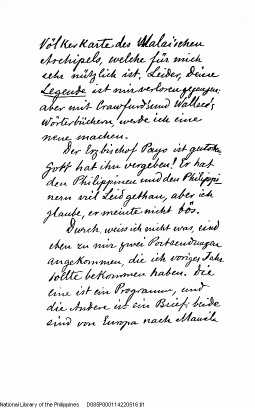 Völkerkarte des Malaischen
Archipels, welche für mich
sehr nützlich ist. Leider, Deine
Legende ist mir verloren gegangen;
aber mit Crawfurds und Wallace's
Wörterbüchern werde ich eine
neue machen.
Der Erzbischof Payo ist gestorben
Gott hat ihn vergeben! Er hat
den Philippinen und den Philippi-
nern viel Leid gethan, aber ich
glaube, er meinte nicht bös.
Durch, weiss ich nicht was, sind
eben zu mir zwei Postsendungen
angekommen, die ich voriges Jahr
sollte bekommen haben. Die
eine ist ein Programm, und
die Andere ist ein Brief; beide
sind von Europa nach Manila
National Library of the Philippines